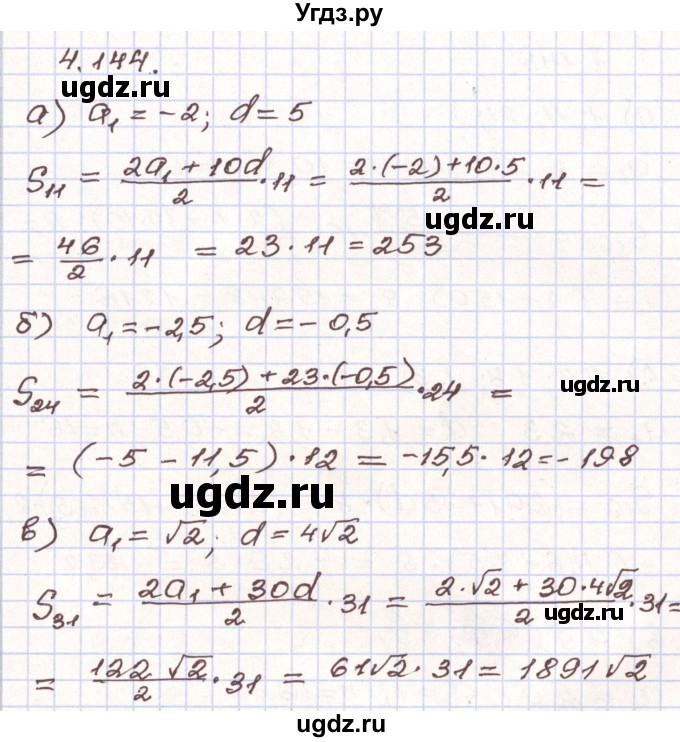 Угдз.ру
4.144.
ugdz.ru
а) a₁ = -2; d = 5
S₁₁ = (2a₁ + 10d)/2 · 11 = (2·(-2)+10·5)/2 · 11 =
ugdz.ru
= 46/2 · 11 = 23 · 11 = 253
б) a₁ = -2,5; d = -0,5
ugdz.ru
S₂₄ = (2·(-2,5) + 23·(-0,5))/2 · 24 =
ugdz.ru
= (-5 - 11,5) · 12 = -15,5 · 12 = -198
ugdz.ru
в) a₁ = √2; d = 4√2
S₃₁ = (2a₁ + 30d)/2 · 31 = (2·√2 + 30·4√2)/2 · 31 =
ugdz.ru
= 122√2/2 · 31 = 61√2 · 31 = 1891√2
ugdz.ru